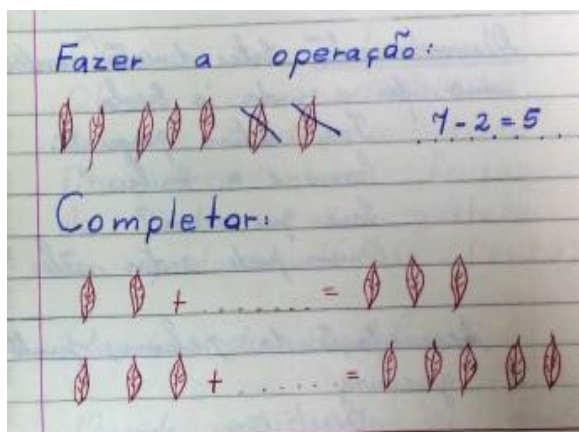 Fazer a operação:
7 - 2 = 5
Completar:
+ ........ =
+ ...... =